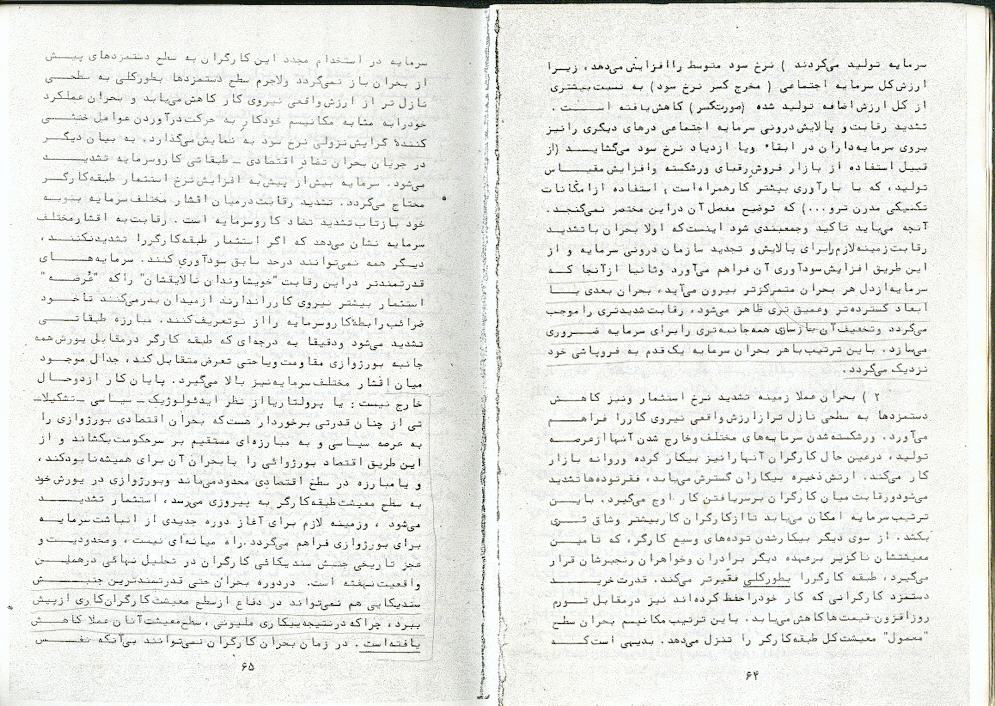 سرمایه تولید می‌گردند ) نرخ سود متوسط را افزایش می‌دهد، زیرا
ارزش کل سرمایه اجتماعی ( مخرج کسر نرخ سود) به نسبت بیشتری
از کل ارزش اضافه تولید شده (صورت کسر) کاهش یافته است .
تشدید رقابت و پالایش درونی سرمایه اجتماعی درهای دیگری را نیز
بروی سرمایه‌داران در ابقاء ویا ازدیاد نرخ سود می‌گشاید (از
قبیل استفاده از بازار فروش رقبای ورشکسته و افزایش مقیاس
تولید، که با بارآوری بیشتر کار همراه است ؛ استفاده از امکانات
تکنیکی مدرن تر و...) که توضیح مفصل آن در این مختصر نمی‌گنجد.
آنچه می‌باید تاکید وجمعبندی شود اینست که اولا بحران با تشدید
رقابت زمینه لازم را برای پالایش و تجدید سازمان درونی سرمایه و از
این طریق افزایش سودآوری آن فراهم می‌آورد وثانیا از آنجا که
سرمایه از دل هر بحران متمرکزتر بیرون می‌آید، بحران بعدی با
ابعاد گسترده تر وعمیق تری ظاهر می‌شود، رقابت شدیدتری را موجب
می‌گردد وتخفیف آن بازسازی همه‌جانبه‌تری را برای سرمایه ضروری
می‌سازد. باین ترتیب با هر بحران سرمایه یک قدم به فروپاشی خود
نزدیک می‌گردد.
۲ ) بحران عملا زمینه تشدید نرخ استثمار ونیز کاهش
دستمزدها به سطحی نازل تر از ارزش واقعی نیروی کار را فراهم
می‌آورد. ورشکسته شدن سرمایه‌های مختلف وخارج شدن آنها از عرصه
تولید، درعین حال کارگران آنها را نیز بیکار کرده وروانه بازار
کار می‌کند. ارتش ذخیره بیکاران گسترش می‌یابد، فقر توده‌ها تشدید
می‌شود و رقابت میان کارگران بر سر یافتن کار اوج می‌گیرد. باین
ترتیب سرمایه امکان می‌یابد تا از کارگران کار بیشتر وشاق تری
بکشد. از سوی دیگر بیکار شدن توده‌های وسیع کارگر، که تامین
معیشتشان ناگزیر برعهده دیگر برادران وخواهران رنجبرشان قرار
می‌گیرد، طبقه کارگر را بطورکلی فقیرتر می‌کند. قدرت خرید
دستمزد کارگرانی که کار خود را حفظ کرده‌اند نیز در مقابل تورم
روزافزون قیمت‌ها کاهش می‌یابد. باین ترتیب مکانیسم بحران سطح
"معمول" معیشت کل طبقه کارگر را تنزل می‌دهد. بدیهی است که
۶۴
سرمایه در استخدام مجدد این کارگران به سطح دستمزدهای پیش
از بحران باز نمی‌گردد ولاجرم سطح دستمزدها بطورکلی به سطحی
نازل تر از ارزش واقعی نیروی کار کاهش می‌یابد و بحران عملکرد
خود را به مثابه مکانیسم خودکار به حرکت درآوردن عوامل خنثی
کنندهٔ گرایش نزولی نرخ سود به نمایش می‌گذارد. به بیان دیگر
در جریان بحران تضاد اقتصادی - طبقاتی کار و سرمایه تشدید
می‌شود. سرمایه بیش از پیش به افزایش نرخ استثمار طبقه کارگر
محتاج می‌گردد. تشدید رقابت درمیان اقشار مختلف سرمایه بنوبه
خود بازتاب تشدید تضاد کار و سرمایه است . رقابت به اقشار مختلف
سرمایه نشان می‌دهد که اگر استثمار طبقه کارگر را تشدید نکنند،
دیگر همه نمی‌توانند درحد سابق سودآوری کنند. سرمایه‌های
قدرتمندتر در این رقابت "خویشاوندان نالایقشان" را که "عُرضه"
استثمار بیشتر نیروی کار را ندارند از میدان بدر می‌کنند تا خود
ضرائب رابطهٔ کار و سرمایه را از نو تعریف کنند. مبارزه طبقاتی
تشدید می‌شود ودقیقا به درجه‌ای که طبقه کارگر درمقابل یورش همه
جانبه بورژوازی مقاومت ویا حتی تعرض متقابل کند، جدال موجود
میان اقشار مختلف سرمایه نیز بالا می‌گیرد. پایان کار از دو حال
خارج نیست : یا پرولتاریا از نظر ایدئولوژیک - سیاسی - تشکیلا-
تی از چنان قدرتی برخوردار هست که بحران اقتصادی بورژوازی را
به عرصه سیاسی و به مبارزه‌ای مستقیم بر سر حکومت بکشاند و از
این طریق اقتصاد بورژوائی را با بحران آن برای همیشه نابود کند،
و یا مبارزه در سطح اقتصادی محدود می‌ماند وبورژوازی در یورش خود
به سطح معیشت طبقه کارگر به پیروزی می‌رسد، استثمار تشدید
می‌شود ، وزمینه لازم برای آغاز دوره جدیدی از انباشت سرمایه
برای بورژوازی فراهم می‌گردد. راه میانه‌ای نیست ، ومحدودیت و
عجز تاریخی جنبش سندیکائی کارگران در تحلیل نهائی در همین
واقعیت نهفته است . دردوره بحران حتی قدرتمندترین جنبش
سندیکایی هم نمی‌تواند در دفاع از سطح معیشت کارگران کاری از پیش
ببرد، چرا که در نتیجه بیکاری ملیونی ، سطح معیشت آنان عملا کاهش
یافته است . در زمان بحران کارگران نمی‌توانند بی‌آنکه نفس
۶۵